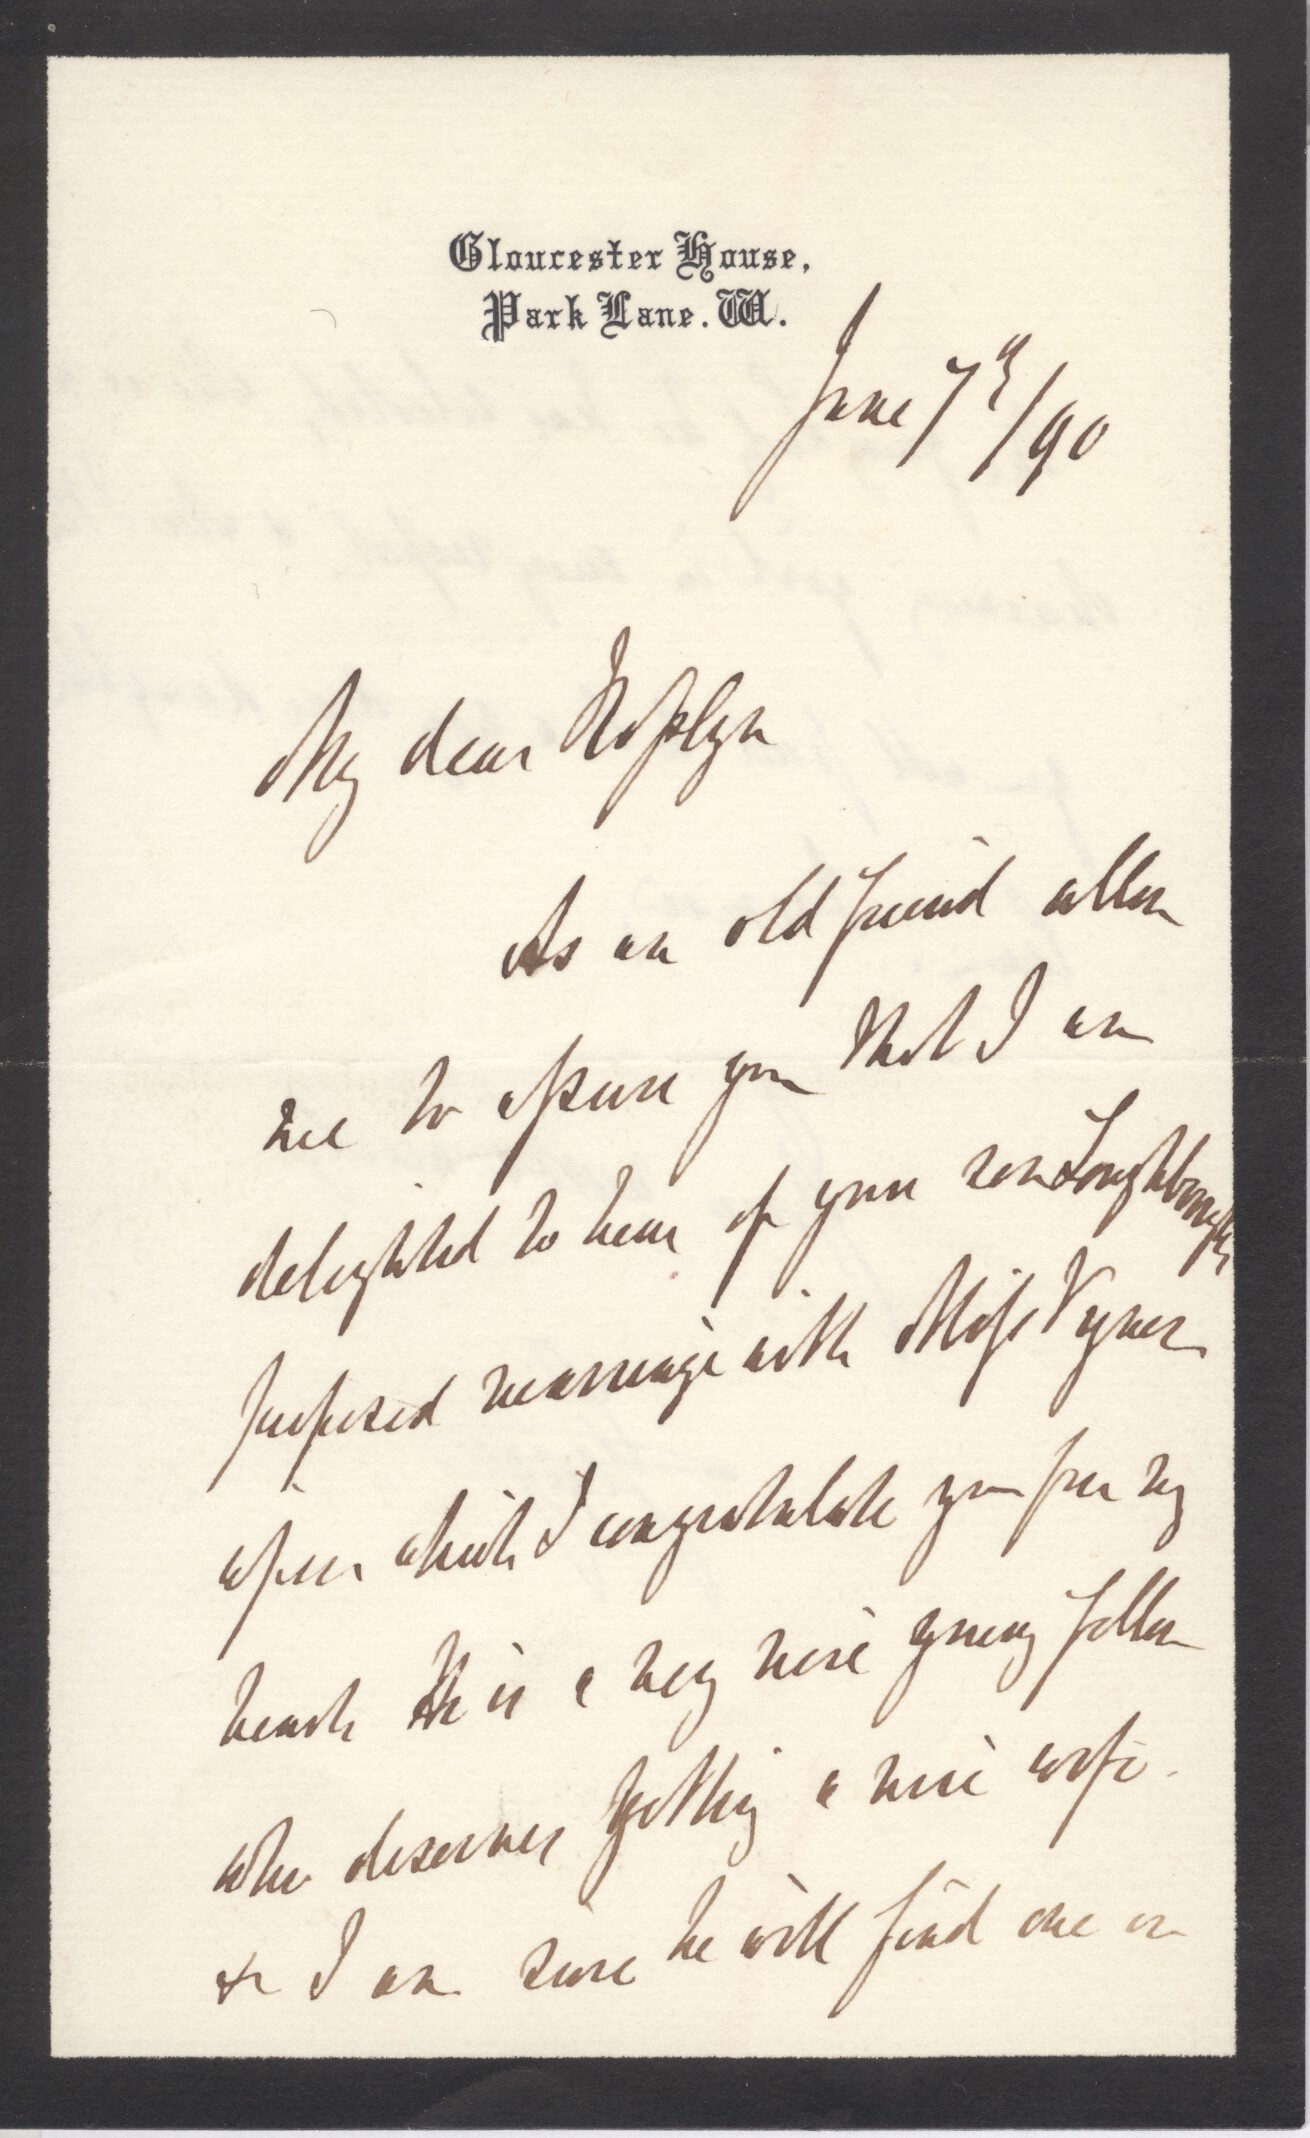 Gloucester House,
Park Lane. W.
June 7th/90
My dear Rosslyn
As an old friend allow
me to assure you that I am
delighted to hear of your son Loughborough's
proposed marriage with Miss Vyner
upon which I congratulate you from my
heart. He is a very nice young fellow
who deserves getting a nice wife.
& I am sure he will find one in